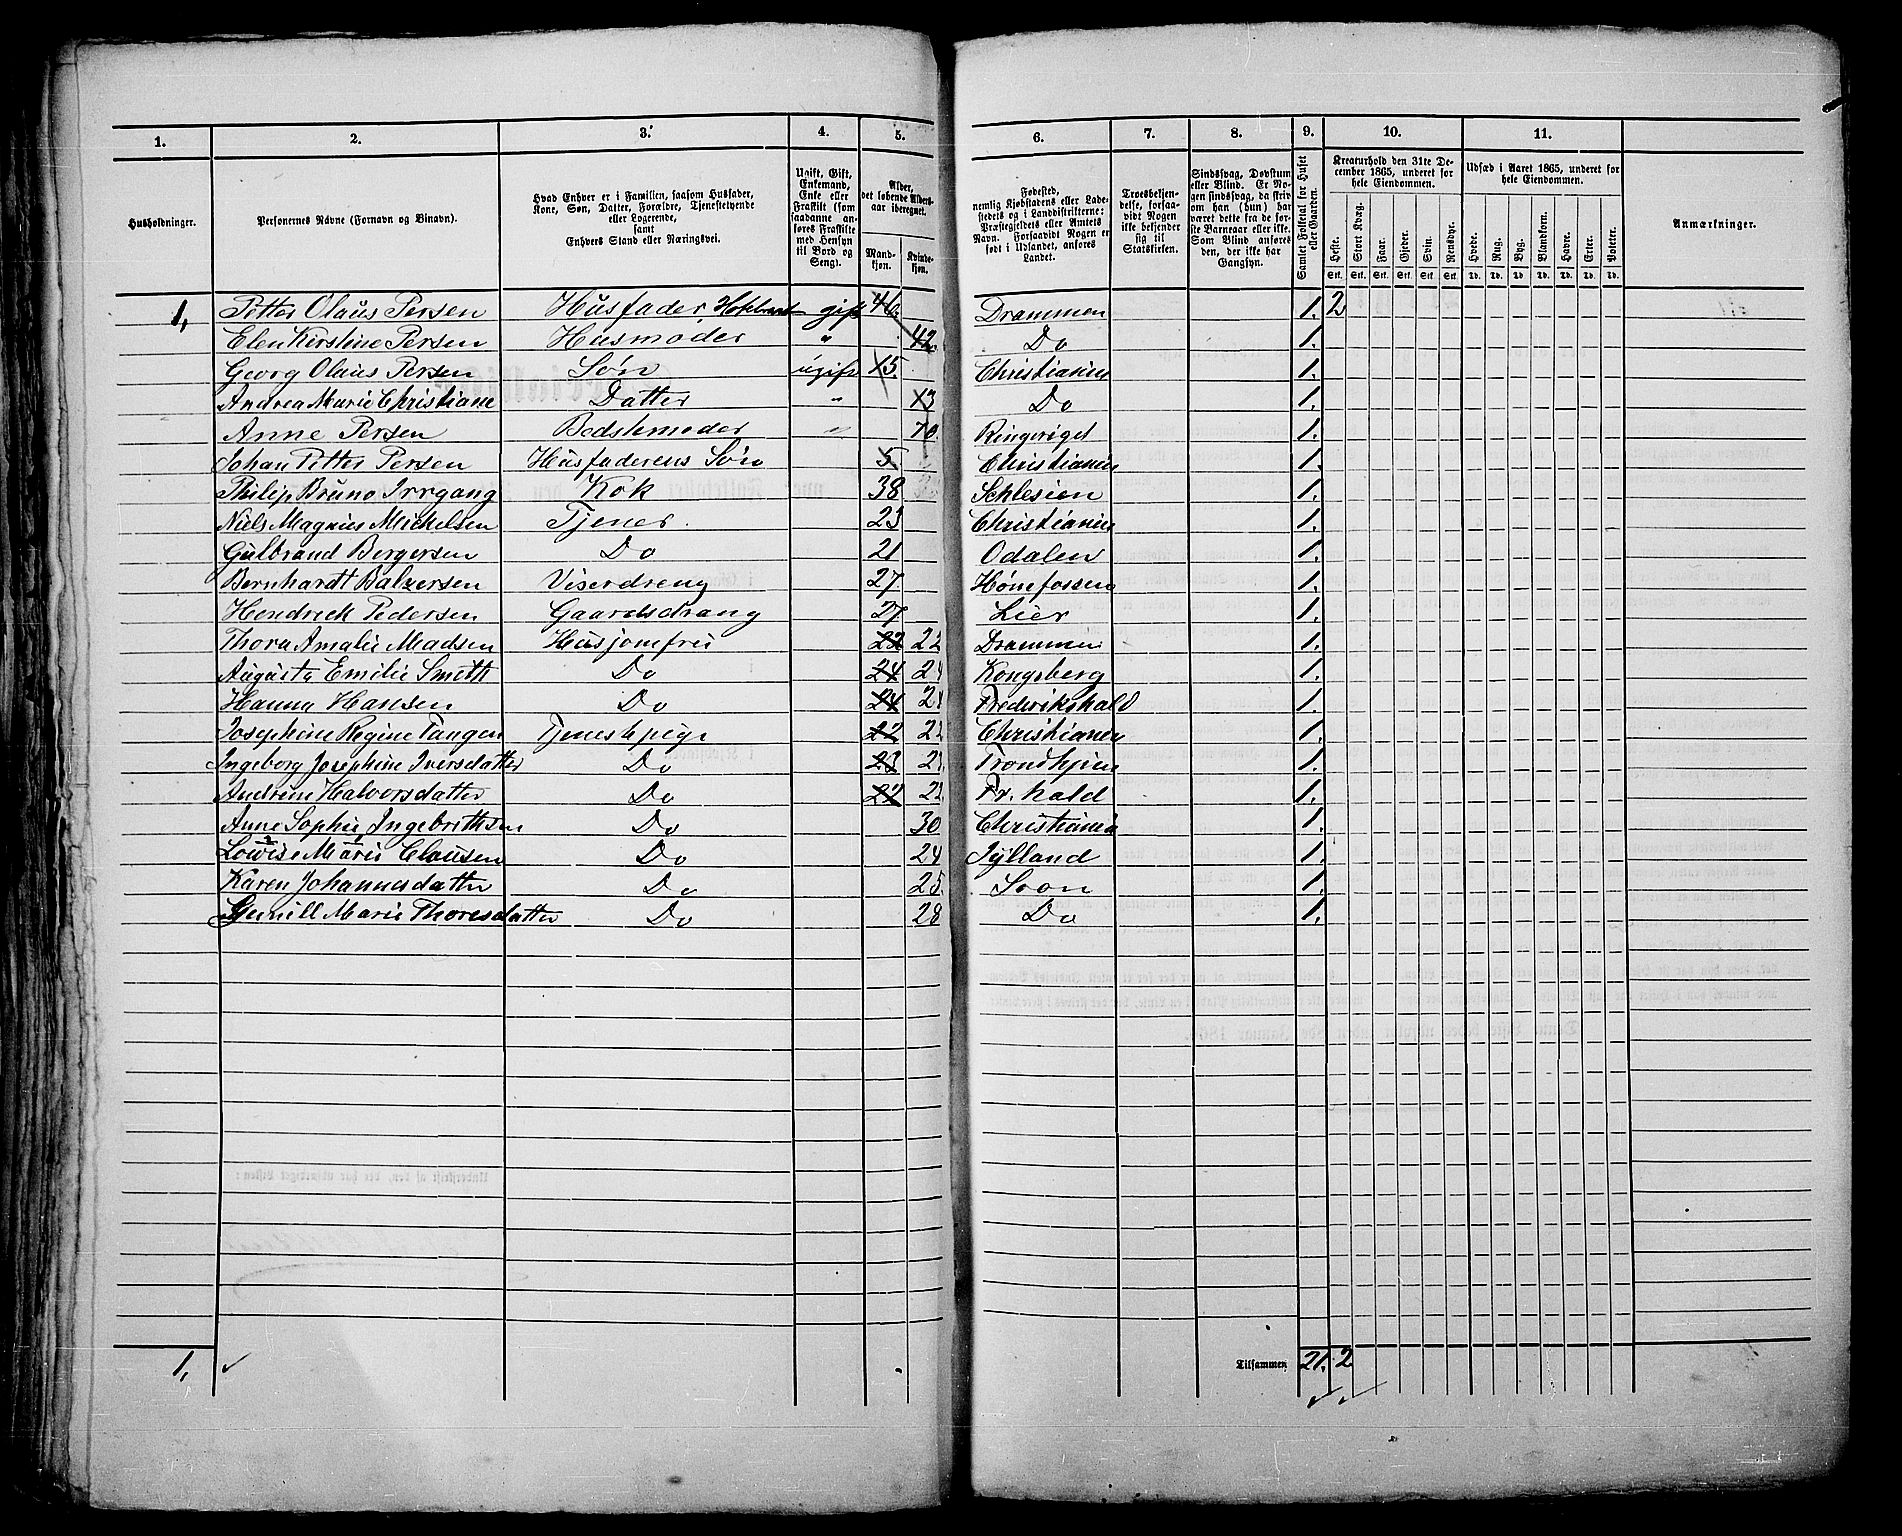 1. 2. 3. 4. 5. 6. 7. 8. 9. 10. 11.
Husholdninger.
Personernes Navne (Fornavn og Binavn).
Hvad Enhver er i Familien, saasom Husfader,
Kone, Søn, Datter, Forældre, Tjenestetyende
eller Logerende,
samt
Enhvers Stand eller Næringsvei.
Ugift, Gift,
Enkemand,
Enke eller
Fraskilt (som
saadanne an-
føres Fraskilte
med Hensyn
til Bord og
Seng).
Alder,
det løbende Alders-
aar iberegnet.
Mand-
kjøn.
Kvinde-
kjøn.
Fødested,
nemlig Kjøbstadens eller Lade-
stedets og i Landdistrikterne:
Præstegjeldets eller Amtets
Navn. Forsaavidt Nogen er
født i Udlandet, anføres
Landet.
Troesbekjen-
delse, forsaa-
vidt Nogen
ikke bekjender
sig til
Statskirken.
Sindssvag, Døvstum
eller Blind. Er No-
gen sindssvag, da skriv
om han (hun) har
været dette fra de før-
ste Barneaar eller ikke.
Som Blind anføres
den, der ikke har
Gangsyn.
Samlet Folketal for Huset
eller Gaarden.
Kreaturhold den 31te De-
cember 1865, underet for
hele Eiendommen.
Heste. Stort Kvæg. Faar. Gjeder. Svin. Rensdyr.
Stk. Stk. Stk. Stk. Stk. Stk.
Udsæd i Aaret 1865, underet for
hele Eiendommen.
Hvede. Rug. Byg. Blandkorn. Havre. Erter. Poteter.
Td. Td. Td. Td. Td. Td. Td.
Anmærkninger.
1, Petter Olaus Persen Husfader, gift 46 Drammen 1. 2
Elen Kirstine Persen Husmoder " 42 Do 1.
Georg Olaus Persen Søn ugift 15 Christiania 1.
Andrea Marie Christiane Datter " 13 Do 1.
Anne Persen Bedstemoder " 70 Ringeriget 1.
Johan Petter Persen Husfaderens Søn 5 Christiania 1.
Philip Bruno Irrgang Kok 38 Schlesien 1.
Niels Magnus Mickelsen Tjener. 23 Christiania 1.
Gulbrand Bergersen Do 21 Odalen 1.
Bernhardt Balzersen Viserdreng 27 Hønefossen 1.
Hendrick Pedersen Gaardsdrang 27 Lier 1.
Thora Amalie Madsen Husjomfru 22 22 Drammen 1.
Augusta Emilie Smith Do 24 24 Kongsberg 1.
Hanna Hansen Do 24 24 Frederikshald 1.
Josephine Regine Tangen Tjenestepige 22 22 Christiania 1.
Ingeborg Josephine Iversdatter Do 23 Trondhjem 1.
Andrine Halvorsdatter Do 22 22 Fr. hald 1.
Anne Sophie Ingebrithsen Do 30 Christiania 1.
Lowise Marie Clausen Do 24 Jylland 1.
Karen Johannesdatter Do 25 Soon 1.
Gunill Marie Thoresdatter Do 28 Do 1.
1, Tilsammen 21. 2